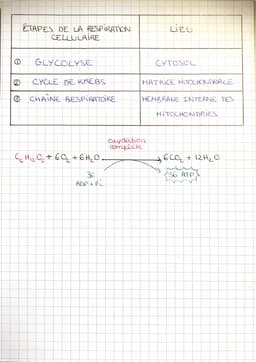 ÉTAPES DE LA RESPIRATION CELLULAIRE
LIEU
① GLYCOLYSE
CYTOSOL
② CYCLE DE KREBS
MATRICE MITOCHONDRIALE
③ CHAÎNE RESPIRATOIRE
MEMBRANE INTERNE DES
MITOCHONDRIES
oxydation
complète
C₆H₁₂O₆ + 6O₂ + 6H₂O → 6CO₂ + 12H₂O
36
ADP+Pi
36 ATP